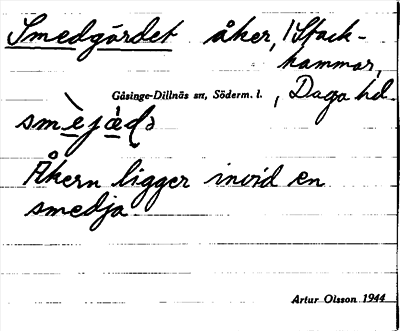 Smedgärdet åker, /Stack-
hammar,
Gåsinge-Dillnäs sn, Söderm. l. , Daga hd.
smèjǽḍə
Åkern ligger invid en
smedja
Artur Olsson 1944